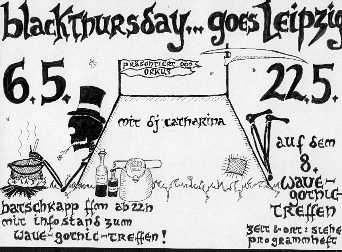 blackthursday... goes Leipzig
6.5.
präsentiert von
ORKUS
22.5.
mit dj catharina
auf dem
8.
wave-
gothic-
treffen
zeit & ort: siehe
programmheft
batschkapp ffm ab 22h
mit infostand zum
wave-gothic-treffen!